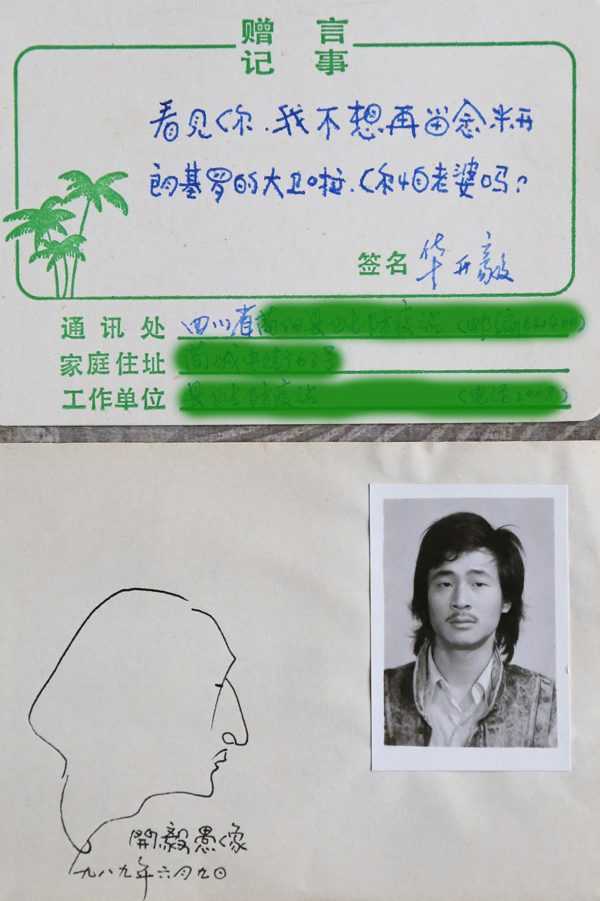 赠 言
记 事
看见你,我不想再留念米开
朗基罗的大卫啦,你怕老婆吗?
签名 华开毅
通讯处 四川省
家庭住址
工作单位
開毅愚像
一九八九年六月九日